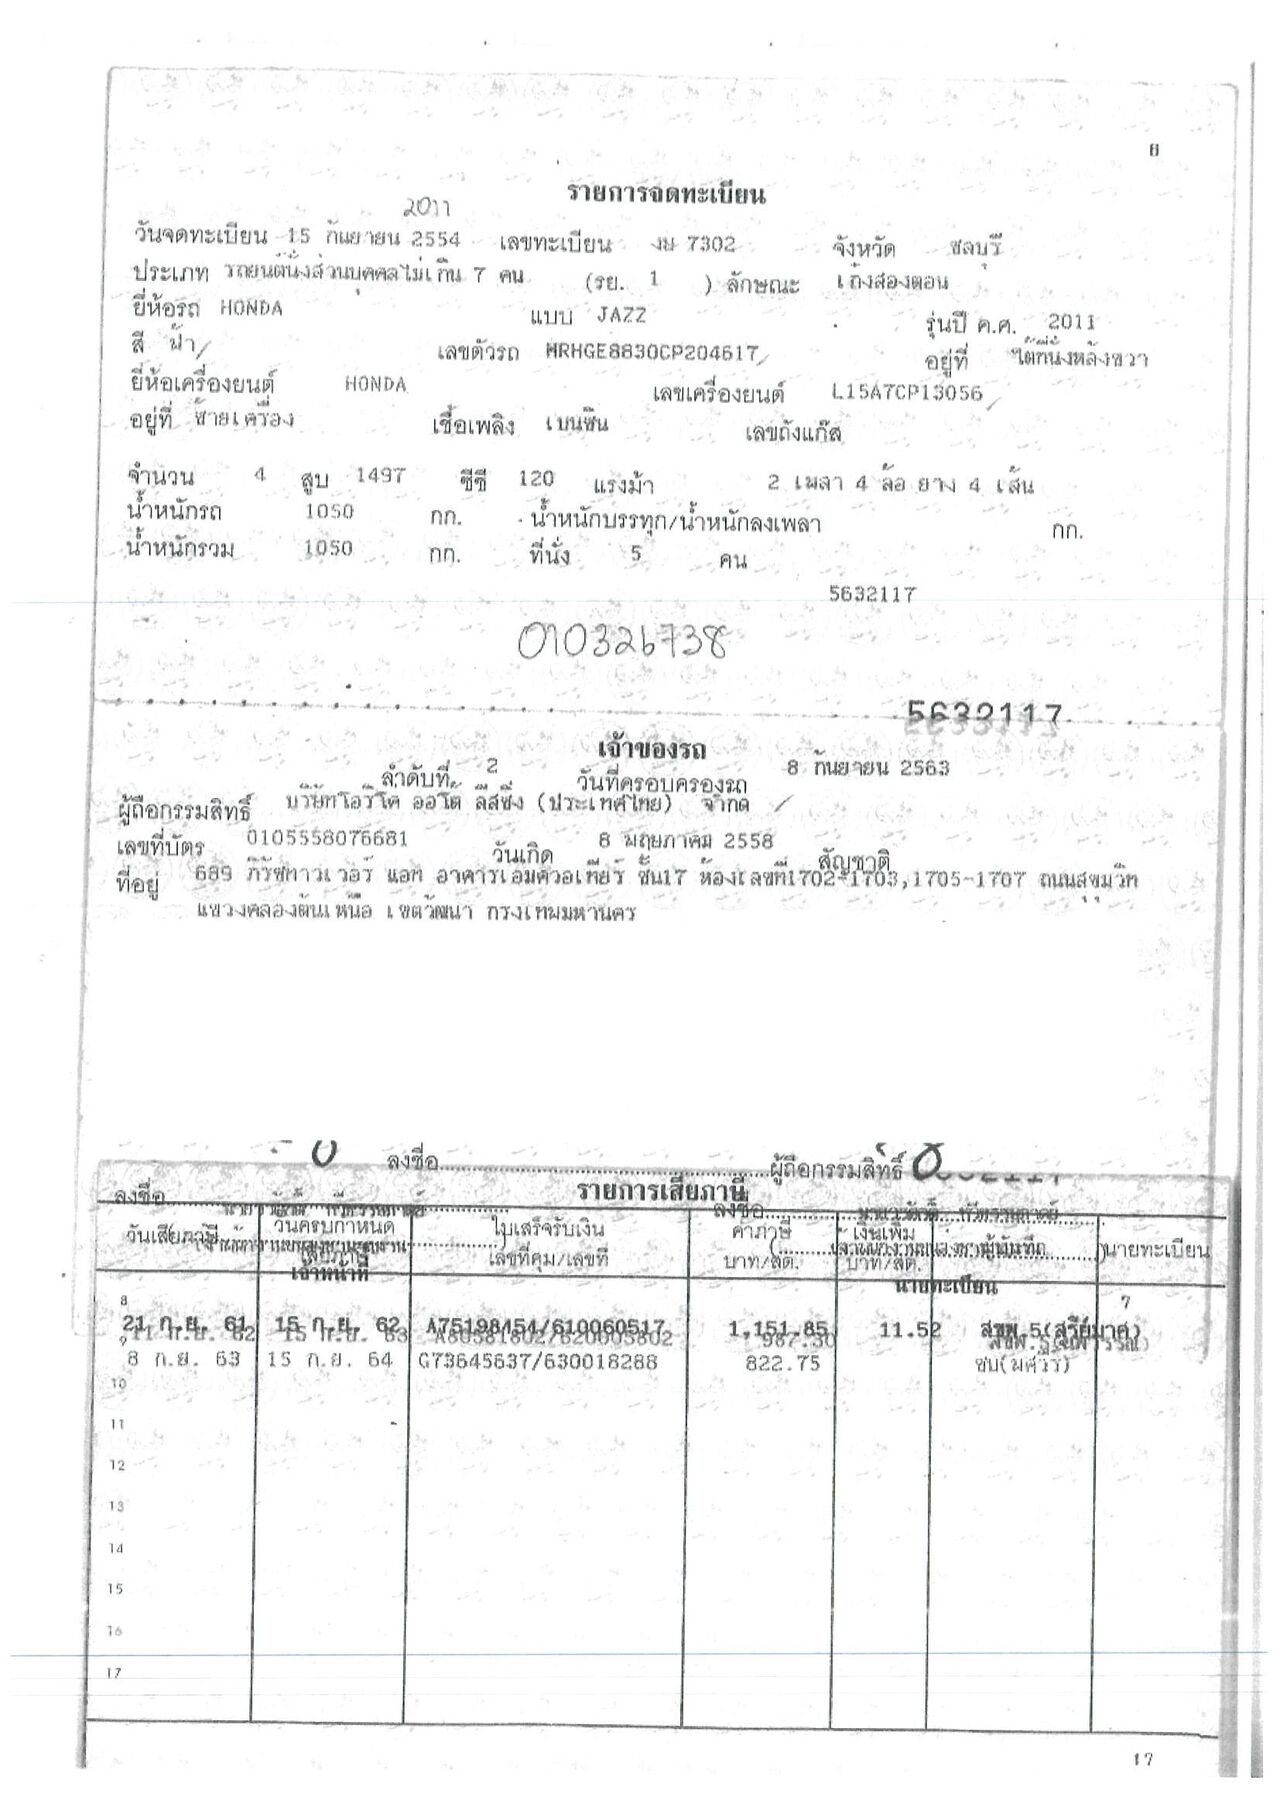 8
รายการจดทะเบียน
2011
วันจดทะเบียน 15 กันยายน 2554 เลขทะเบียน งษ 7302 จังหวัด ชลบุรี
ประเภท รถยนต์นั่งส่วนบุคคลไม่เกิน 7 คน (รย. 1 ) ลักษณะ เก๋งสองตอน
ยี่ห้อรถ HONDA แบบ JAZZ รุ่นปี ค.ศ. 2011
สี ฟ้า เลขตัวรถ MRHGE8830CP204617 อยู่ที่ ใต้ที่นั่งหลังขวา
ยี่ห้อเครื่องยนต์ HONDA เลขเครื่องยนต์ L15A7CP13056
อยู่ที่ ซ้ายเครื่อง เชื้อเพลิง เบนซิน เลขถังแก๊ส
จำนวน 4 สูบ 1497 ซีซี 120 แรงม้า 2 เพลา 4 ล้อ ยาง 4 เส้น
น้ำหนักรถ 1050 กก. น้ำหนักบรรทุก/น้ำหนักลงเพลา กก.
น้ำหนักรวม 1050 กก. ที่นั่ง 5 คน
5632117
010326738
5632117
เจ้าของรถ
ลำดับที่ 2 วันที่ครอบครองรถ 8 กันยายน 2563
ผู้ถือกรรมสิทธิ์ บริษัทโอริโค ออโต้ ลีสซิ่ง (ประเทศไทย) จำกัด
เลขที่บัตร 0105558076681 วันเกิด 8 พฤษภาคม 2558 สัญชาติ
ที่อยู่ 689 ภิรัชทาวเวอร์ แอท อาคารเอมควอเทียร์ ชั้น17 ห้องเลขที่1702-1703,1705-1707 ถนนสุขุมวิท
แขวงคลองตันเหนือ เขตวัฒนา กรุงเทพมหานคร
ลงชื่อ ผู้ถือกรรมสิทธิ์
รายการเสียภาษี
ลงชื่อ ลงชื่อ
วันเสียภาษี วันครบกำหนด ใบเสร็จรับเงิน ค่าภาษี เงินเพิ่ม
เลขที่คุม/เลขที่ บาท/สต. บาท/สต. นายทะเบียน
เจ้าหน้าที่ นายทะเบียน
8 7
21 ก.ย. 61 15 ก.ย. 62 A75198454/610060517 1,151.85 11.52
9 8 ก.ย. 63 15 ก.ย. 64 G73645637/630018288 822.75
10
11
12
13
14
15
16
17
17